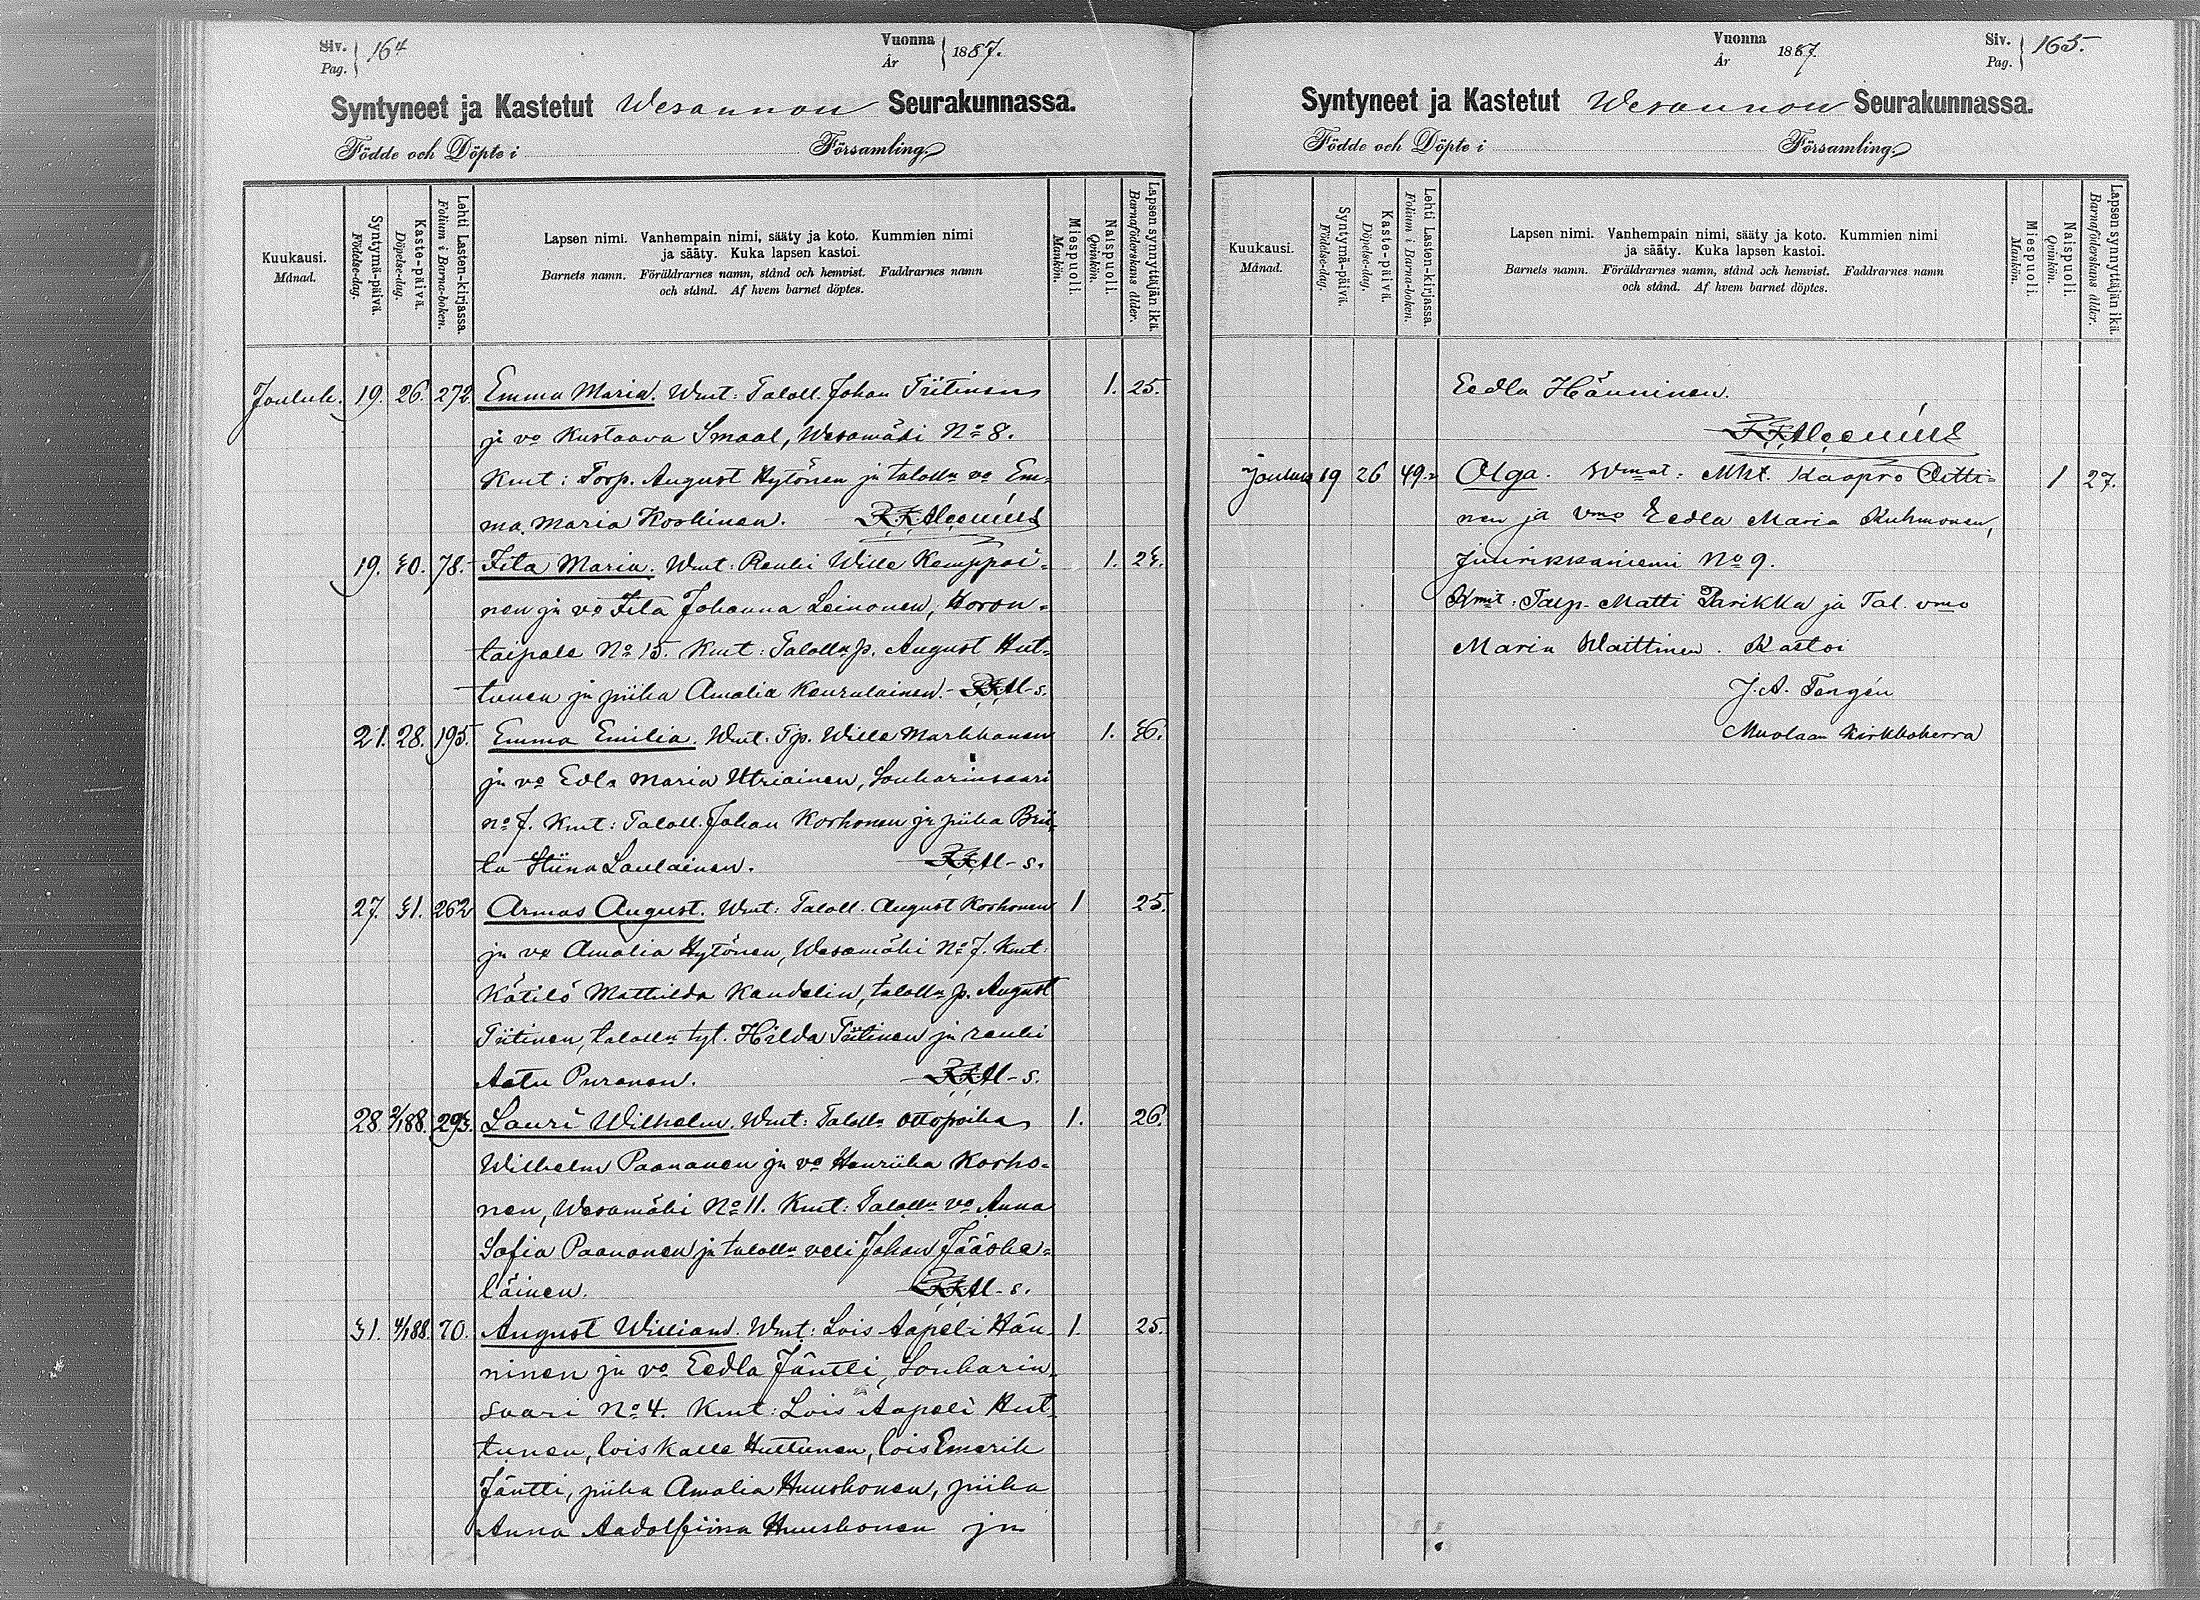 Siv. Pag. 164
Vuonna År 1887.
Syntyneet ja Kastetut Wesannon Seurakunnassa.
Födde och Döpte i Församling.
Kuukausi. Månad.
Syntymä-päivä. Födelse-dag.
Kaste-päivä. Döpelse-dag.
Lehti Lasten-kirjassa. Folium i Barna-boken.
Lapsen nimi. Vanhempain nimi, sääty ja koto. Kummien nimi
ja sääty. Kuka lapsen kastoi.
Barnets namn. Föräldrarnes namn, stånd och hemvist. Faddrarnes namn
och stånd. Af hvem barnet döptes.
Miespuoli. Mankön.
Naispuoli. Qvinkön.
Lapsen synnyttäjän ikä. Barnaföderskans ålder.
Jouluk. 19. 26. 272 Emma Maria. Wmt: Taloll. Johan Tiitinen 1. 25.
ja vo Kustaava Smaal, Wesamäki No 8.
Kmt: Torp. August Hytönen ja talolln vo Em-
ma Maria Koskinen.
19. 30. 78. Fita Maria. Wmt: Renki Wille Kemppai- 1. 23.
nen ja vo Fita Johanna Leinonen, Horon-
taipale No 15. Kmt: Talolln p. August Hut-
tunen ja piika Amalia Kaurulainen. M-s.
21. 28. 195. Emma Emilia. Wmt: Tp. Wille Markkanen 1. 36.
ja vo Edla Maria Utriainen, Sonkarinsaari
No 7. Kmt: Taloll. Johan Korhonen ja piika Brii-
ta Stiina Laulainen. M-s.
27. 31. 262 Armas August. Wmt: Taloll. August Korhonen 1 25.
ja vo Amalia Hytönen, Wesamäki No 7. Kmt:
Kätilö Mathilda Kandelin, talolln p. August
Tiitinen, talolln tyt. Hilda Tiitinen ja renki
Aatu Puranen. M-s.
28. 2/1 88. 293. Lauri Wilhelm. Wmt: Talolln ottopoika 1. 26.
Wilhelm Paananen ja vo Henriika Korho-
nen, Wesamäki No 11. Kmt: Talolln vo Anna
Sofia Paananen ja talolln veli Johan Jääske-
läinen. M-s.
31. 4/1 88. 70. August William. Wmt: Lois Aapeli Hän- 1. 25.
ninen ja vo Eedla Jäntti, Sonkarin-
saari No 4. Kmt: Lois Aapeli Hut-
tunen, lois Kalle Huttunen, lois Emerik
Jäntti, piika Amalia Huuskonen, piika
Anna Aadolfiina Huuskonen ja
Vuonna År 1887.
Siv. Pag. 165.
Syntyneet ja Kastetut Wesannon Seurakunnassa.
Födde och Döpte i Församling.
Kuukausi. Månad.
Syntymä-päivä. Födelse-dag.
Kaste-päivä. Döpelse-dag.
Lehti Lasten-kirjassa. Folium i Barna-boken.
Lapsen nimi. Vanhempain nimi, sääty ja koto. Kummien nimi
ja sääty. Kuka lapsen kastoi.
Barnets namn. Föräldrarnes namn, stånd och hemvist. Faddrarnes namn
och stånd. Af hvem barnet döptes.
Miespuoli. Mankön.
Naispuoli. Qvinkön.
Lapsen synnyttäjän ikä. Barnaföderskans ålder.
Eedla Hänninen.
Jouluk 19 26 49 Olga. Wmat: Mkt. Kaapro Oitti- 1 27.
nen ja vmo Eedla Maria Kuhmonen,
Juurikkaniemi No 9.
Kmit: Talp. Matti Parikka ja Tal. vmo
Maria Waittinen. Kastoi
J. A. Tengén
Muolaan Kirkkoherra